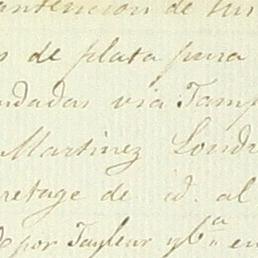 antencion de sus
s de plata pura
ndadas via Tamp
Martinez Londr
retage de id. al
de por Tayleur y bª en